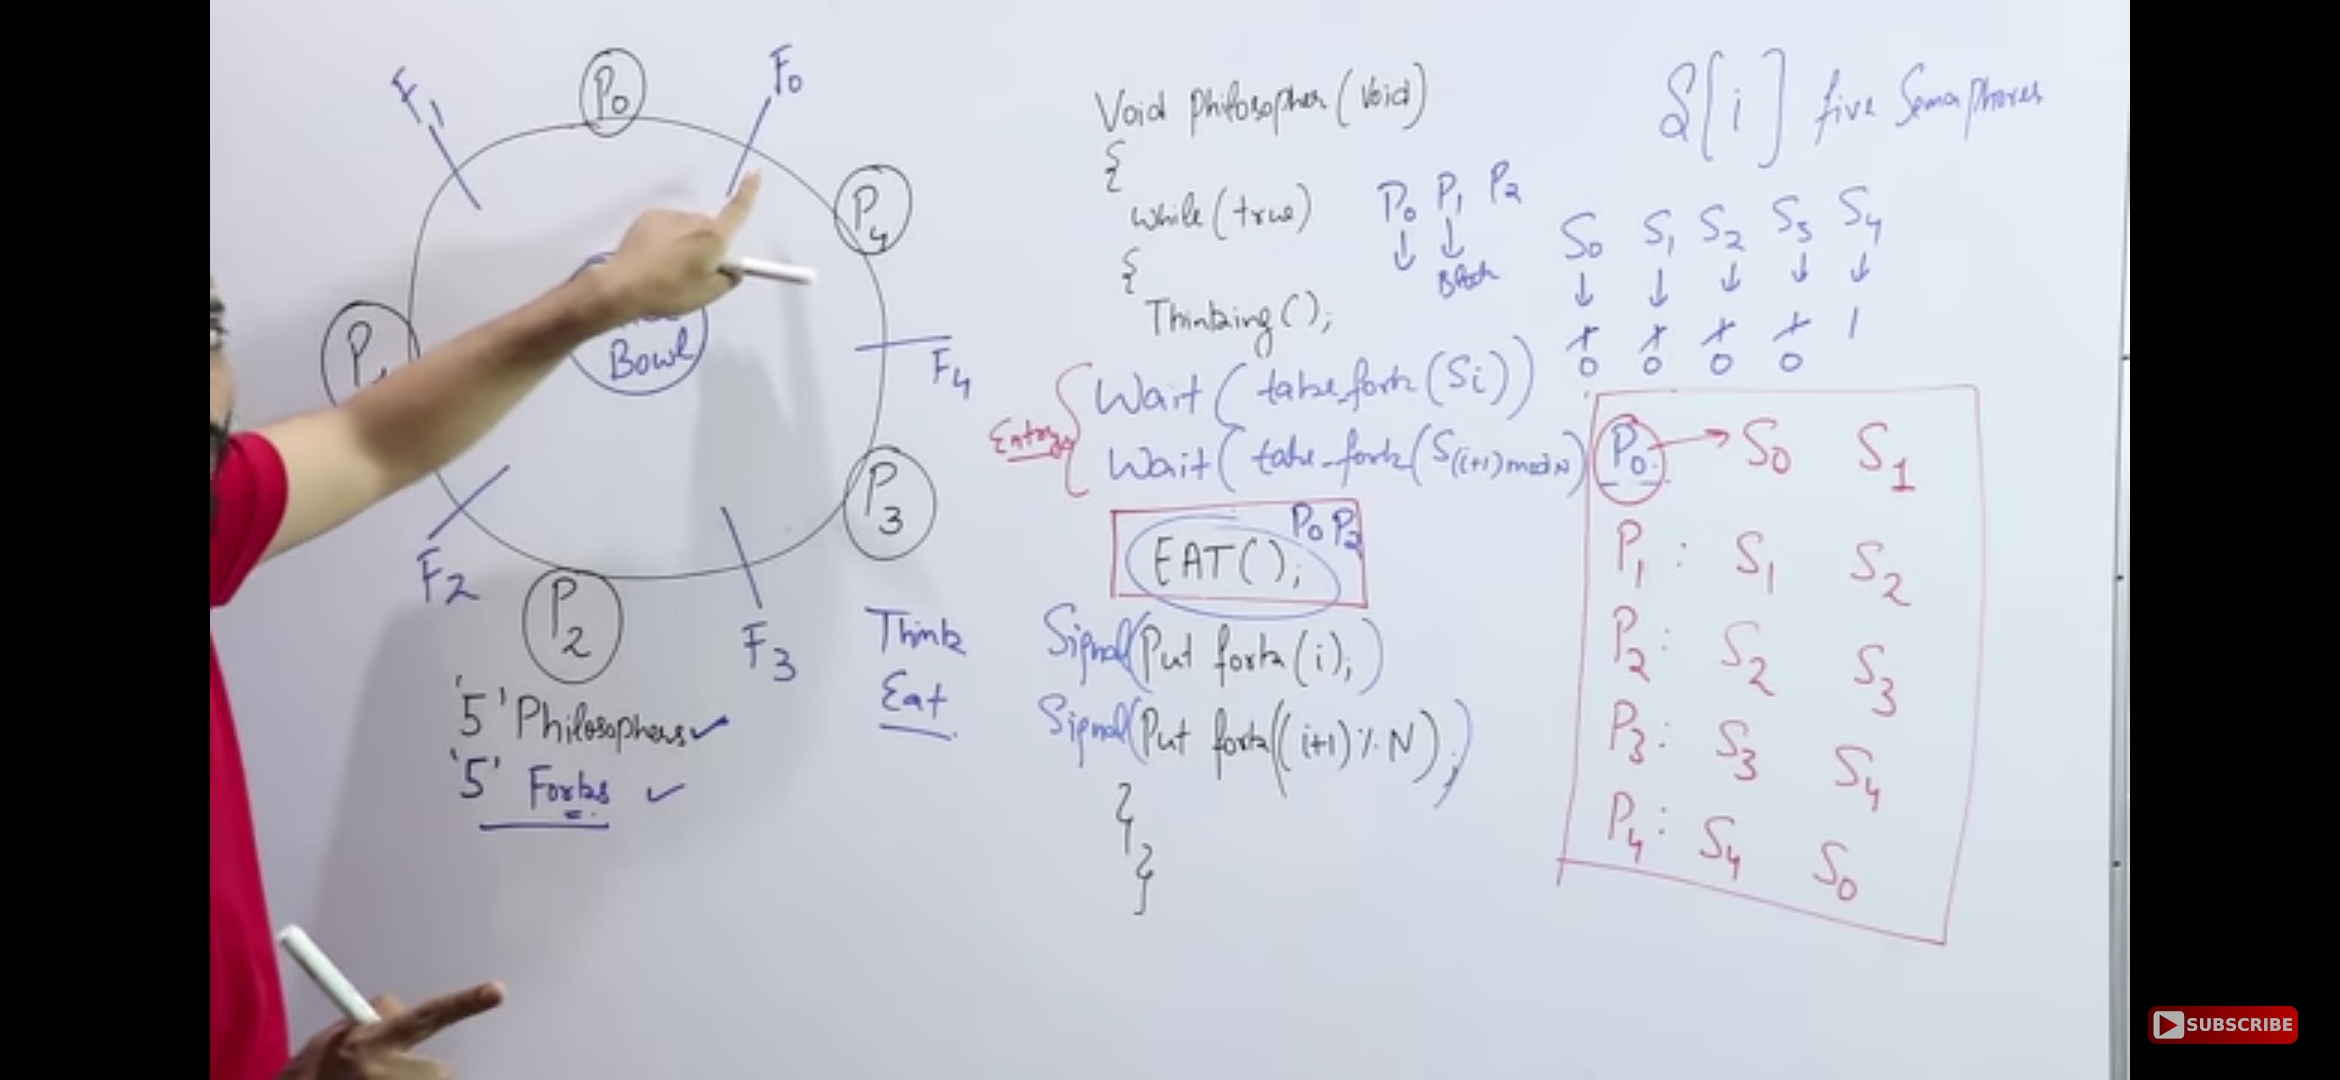 F1
P0
F0
P4
P1
Bowl
F4
P3
F2
P2
F3
'5' Philosophers ✓
'5' Forks ✓
Think
Eat
Void Philosopher (Void)
{
while (true)
{
Thinking();
Entry
Wait (take_fork (Si))
Wait (take_fork (S((i+1) mod N)
EAT();
P0 P2
Signal(Put fork (i);)
Signal(Put fork((i+1) % N);)
}
}
P0 P1 P2
↓ ↓
Block
S[i] five Semaphores
S0 S1 S2 S3 S4
↓ ↓ ↓ ↓ ↓
1 1 1 1 1
0 0 0 0
P0 → S0 S1
P1 : S1 S2
P2 : S2 S3
P3 : S3 S4
P4 : S4 S0
SUBSCRIBE